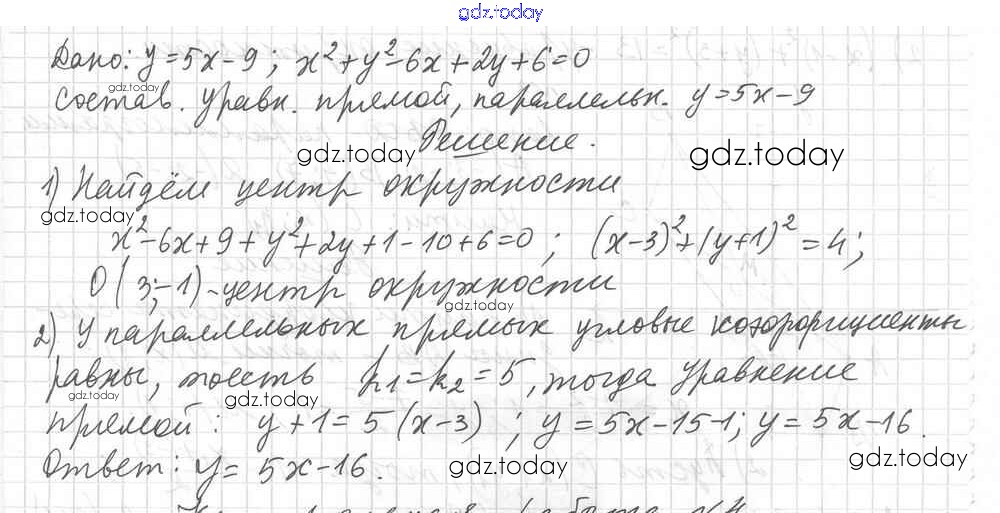 gdz.today
Дано: y=5x-9; x²+y²-6x+2y+6=0
gdz.today
Состав. уравн. прямой, параллельн. y=5x-9
Решение.
gdz.today gdz.today
1) Найдём центр окружности
gdz.today
x²-6x+9+y²+2y+1-10+6=0; (x-3)²+(y+1)²=4;
O(3;-1)-центр окружности
gdz.today
2) У параллельных прямых угловые коэффициенты
равны, то есть k₁=k₂=5, тогда уравнение
gdz.today gdz.today
прямой: y+1=5(x-3); y=5x-15-1; y=5x-16.
Ответ: y=5x-16.
gdz.today gdz.today